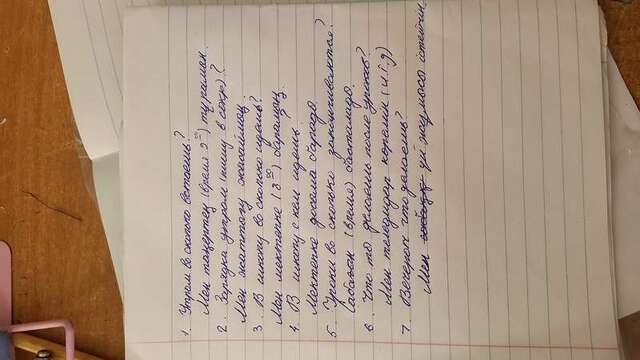 1. Утром во сколько встаешь?
Мен таңертең (время 9⁰⁰) тұрамын.
2. Зарядка утром (пишу в сокр)?
Мен жаттығу жасаймың.
3. В школу во сколько идешь?
Мен мектепке (8⁰⁰) барамың.
4. В школу с кем идешь?
Мектепке досыма барады.
5. Уроки во сколько заканчиваются?
Сабағын (время) басталады.
6. Что ты делаешь после уроков?
Мен теледидар көремін (и.т.д)
7. Вечером что делаешь?
Мен үй жұмысы істейтин